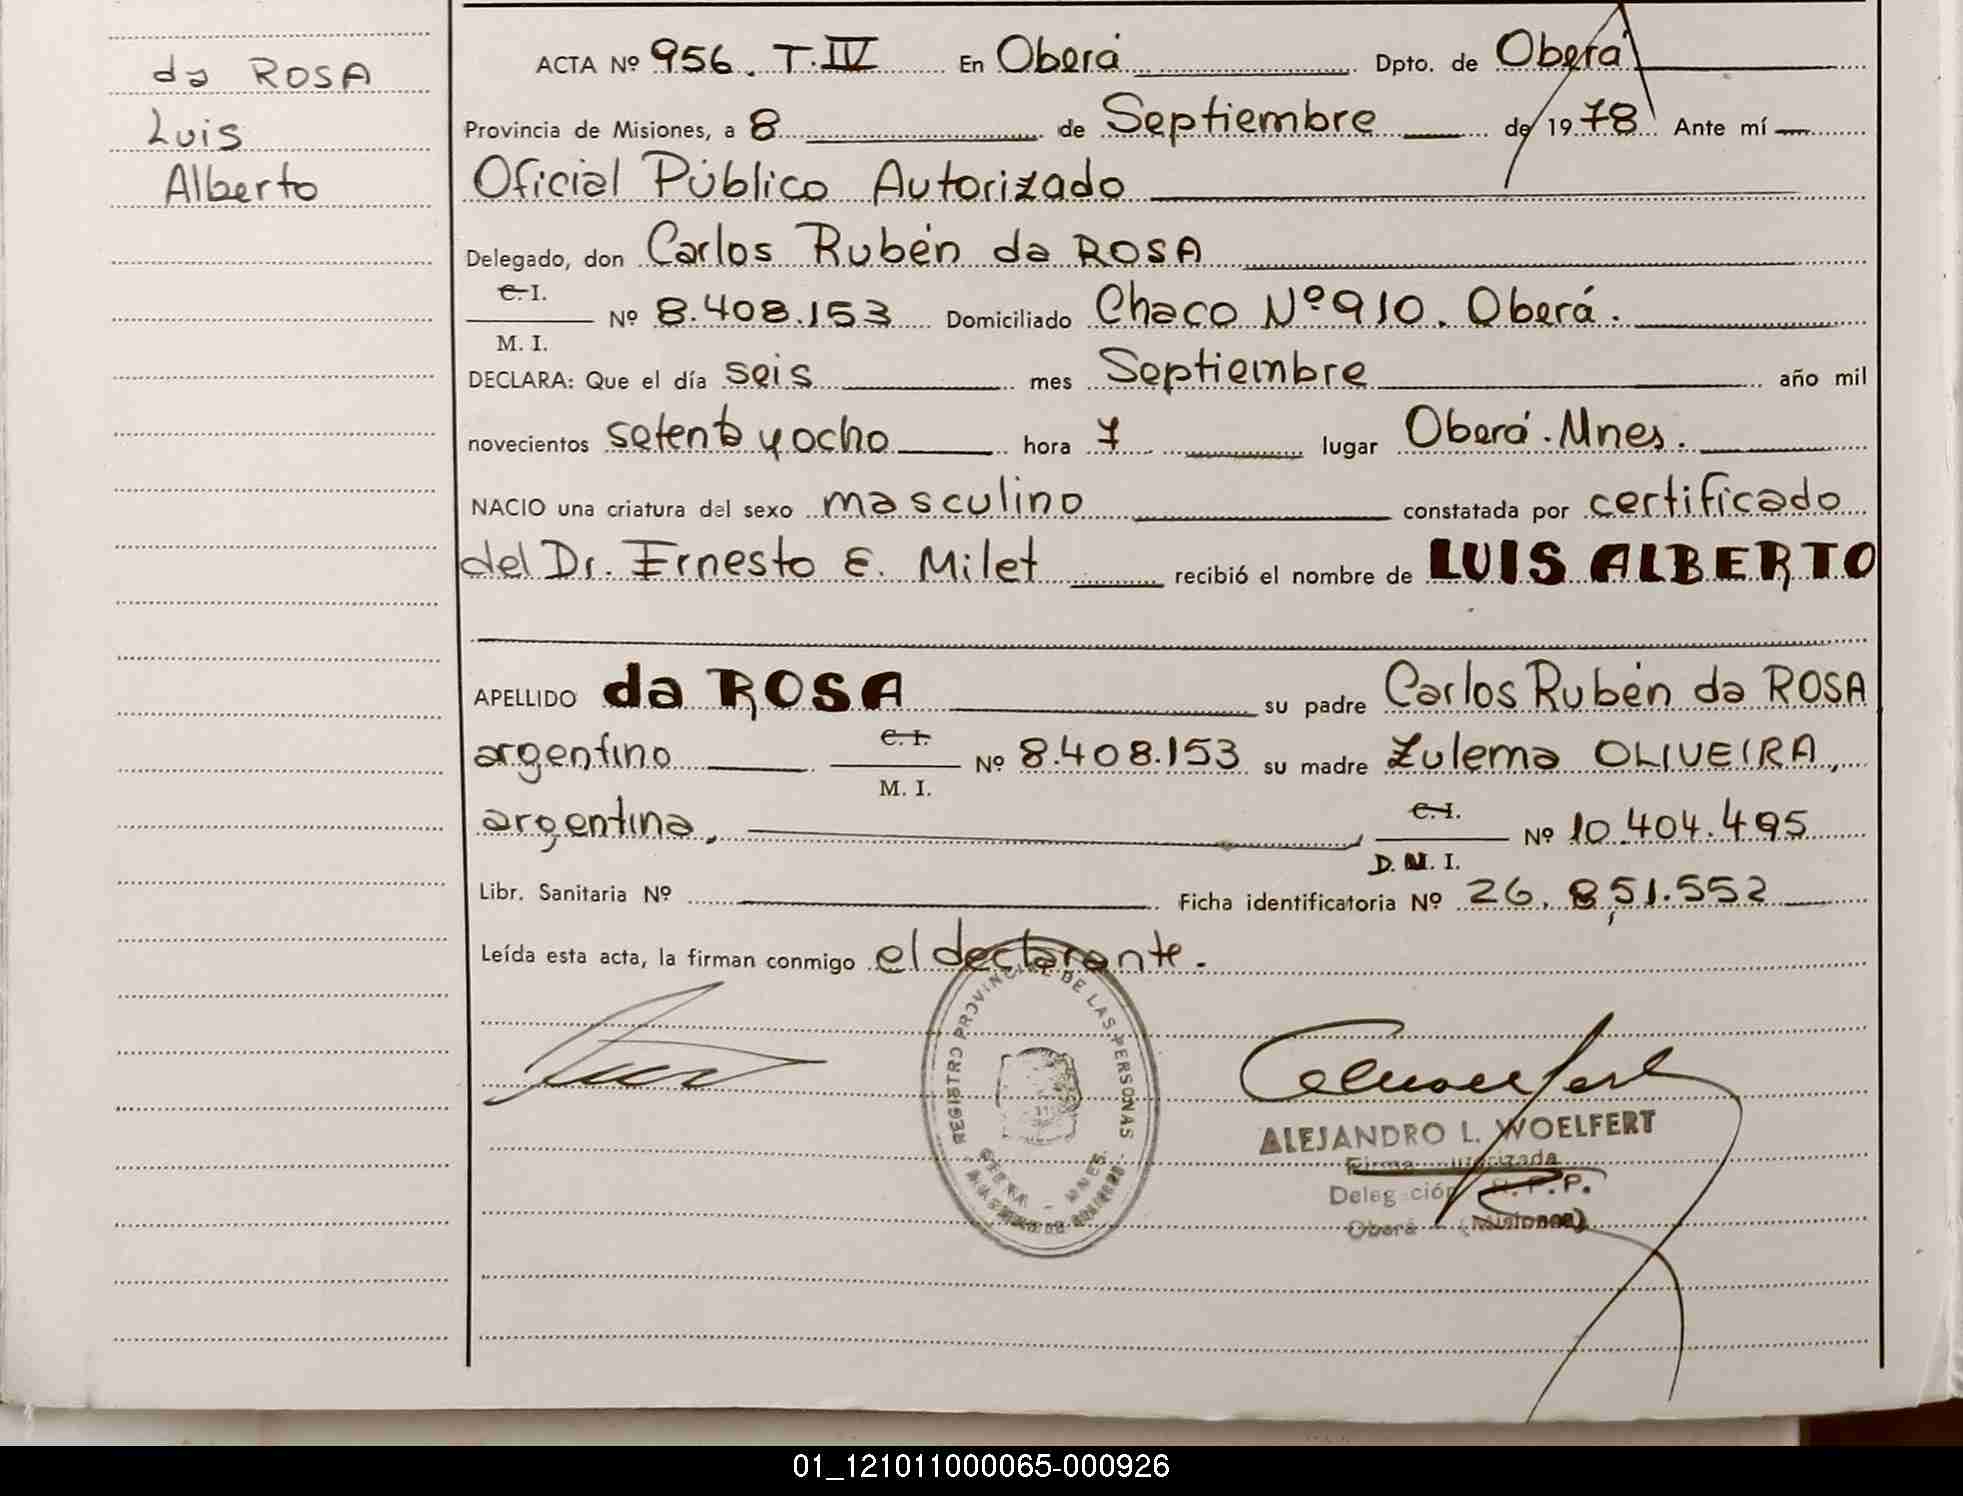 da ROSA
Luis
Alberto
ACTA Nº 956. T. IV En Oberá Dpto. de Oberá
Provincia de Misiones, a 8 de Septiembre de 1978 Ante mí
Oficial Público Autorizado
Delegado, don Carlos Rubén da ROSA
C. I.
M. I.
Nº 8.408.153 Domiciliado Chaco Nº 910. Oberá.
DECLARA: Que el día seis mes Septiembre año mil
novecientos setenta y ocho hora 7 lugar Oberá. Mnes.
NACIO una criatura del sexo masculino constatada por certificado
del Dr. Ernesto E. Milet recibió el nombre de LUIS ALBERTO
APELLIDO da ROSA su padre Carlos Rubén da ROSA
argentino C. I. M. I. Nº 8.408.153 su madre Zulema OLIVEIRA,
argentina, C. I. D. N. I. Nº 10.404.495
Libr. Sanitaria Nº Ficha identificatoria Nº 26.851.552
Leída esta acta, la firman conmigo el declarante.
REGISTRO PROVINCIAL DE LAS PERSONAS
OBERA - MNES.
ALEJANDRO L. WOELFERT
Firma autorizada
Delegación R.P.P.
Oberá (Misiones)
01_121011000065-000926